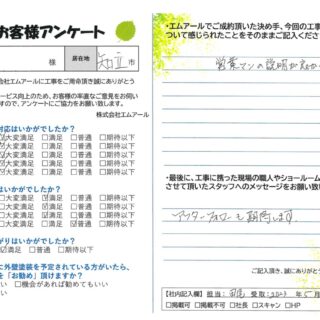 お客様アンケート
様
居在地
知立
市
会社エムアールに工事をご用命頂き誠にありがとう
ービス向上のため、お客様の率直なご意見をお伺い
すので、アンケートにご協力をお願い致します。
株式会社エムアール
対応はいかがでしたか?
大変満足 □満足 □普通 □期待以下
大変満足 □満足 □普通 □期待以下
大変満足 □満足 □普通 □期待以下
大変満足 □満足 □普通 □期待以下
はいかがでしたか?
□大変満足 ☑満足 □普通 □期待以下
□大変満足 ☑満足 □普通 □期待以下
□大変満足 ☑満足 □普通 □期待以下
がりはいかがでしたか?
☑満足 □普通 □期待以下
に外壁塗装を予定されている方がいたら、
を「お勧め」頂けますか?
い □機会があれば勧めてもいい
い
・エムアールでご成約頂いた決め手、今回の工事
ついて感じられたことをそのままご記入くださ
営業マンの説明が
・最後に、工事に携った現場の職人やショールーム
させて頂いたスタッフへのメッセージをお願い致
アフターフォローも期待します。
ご記入頂き、誠にありがとう
【社内記入欄】担当: 受取:2023 年 5 月
□掲載可 □掲載不可 □社長 □スキャン □HP